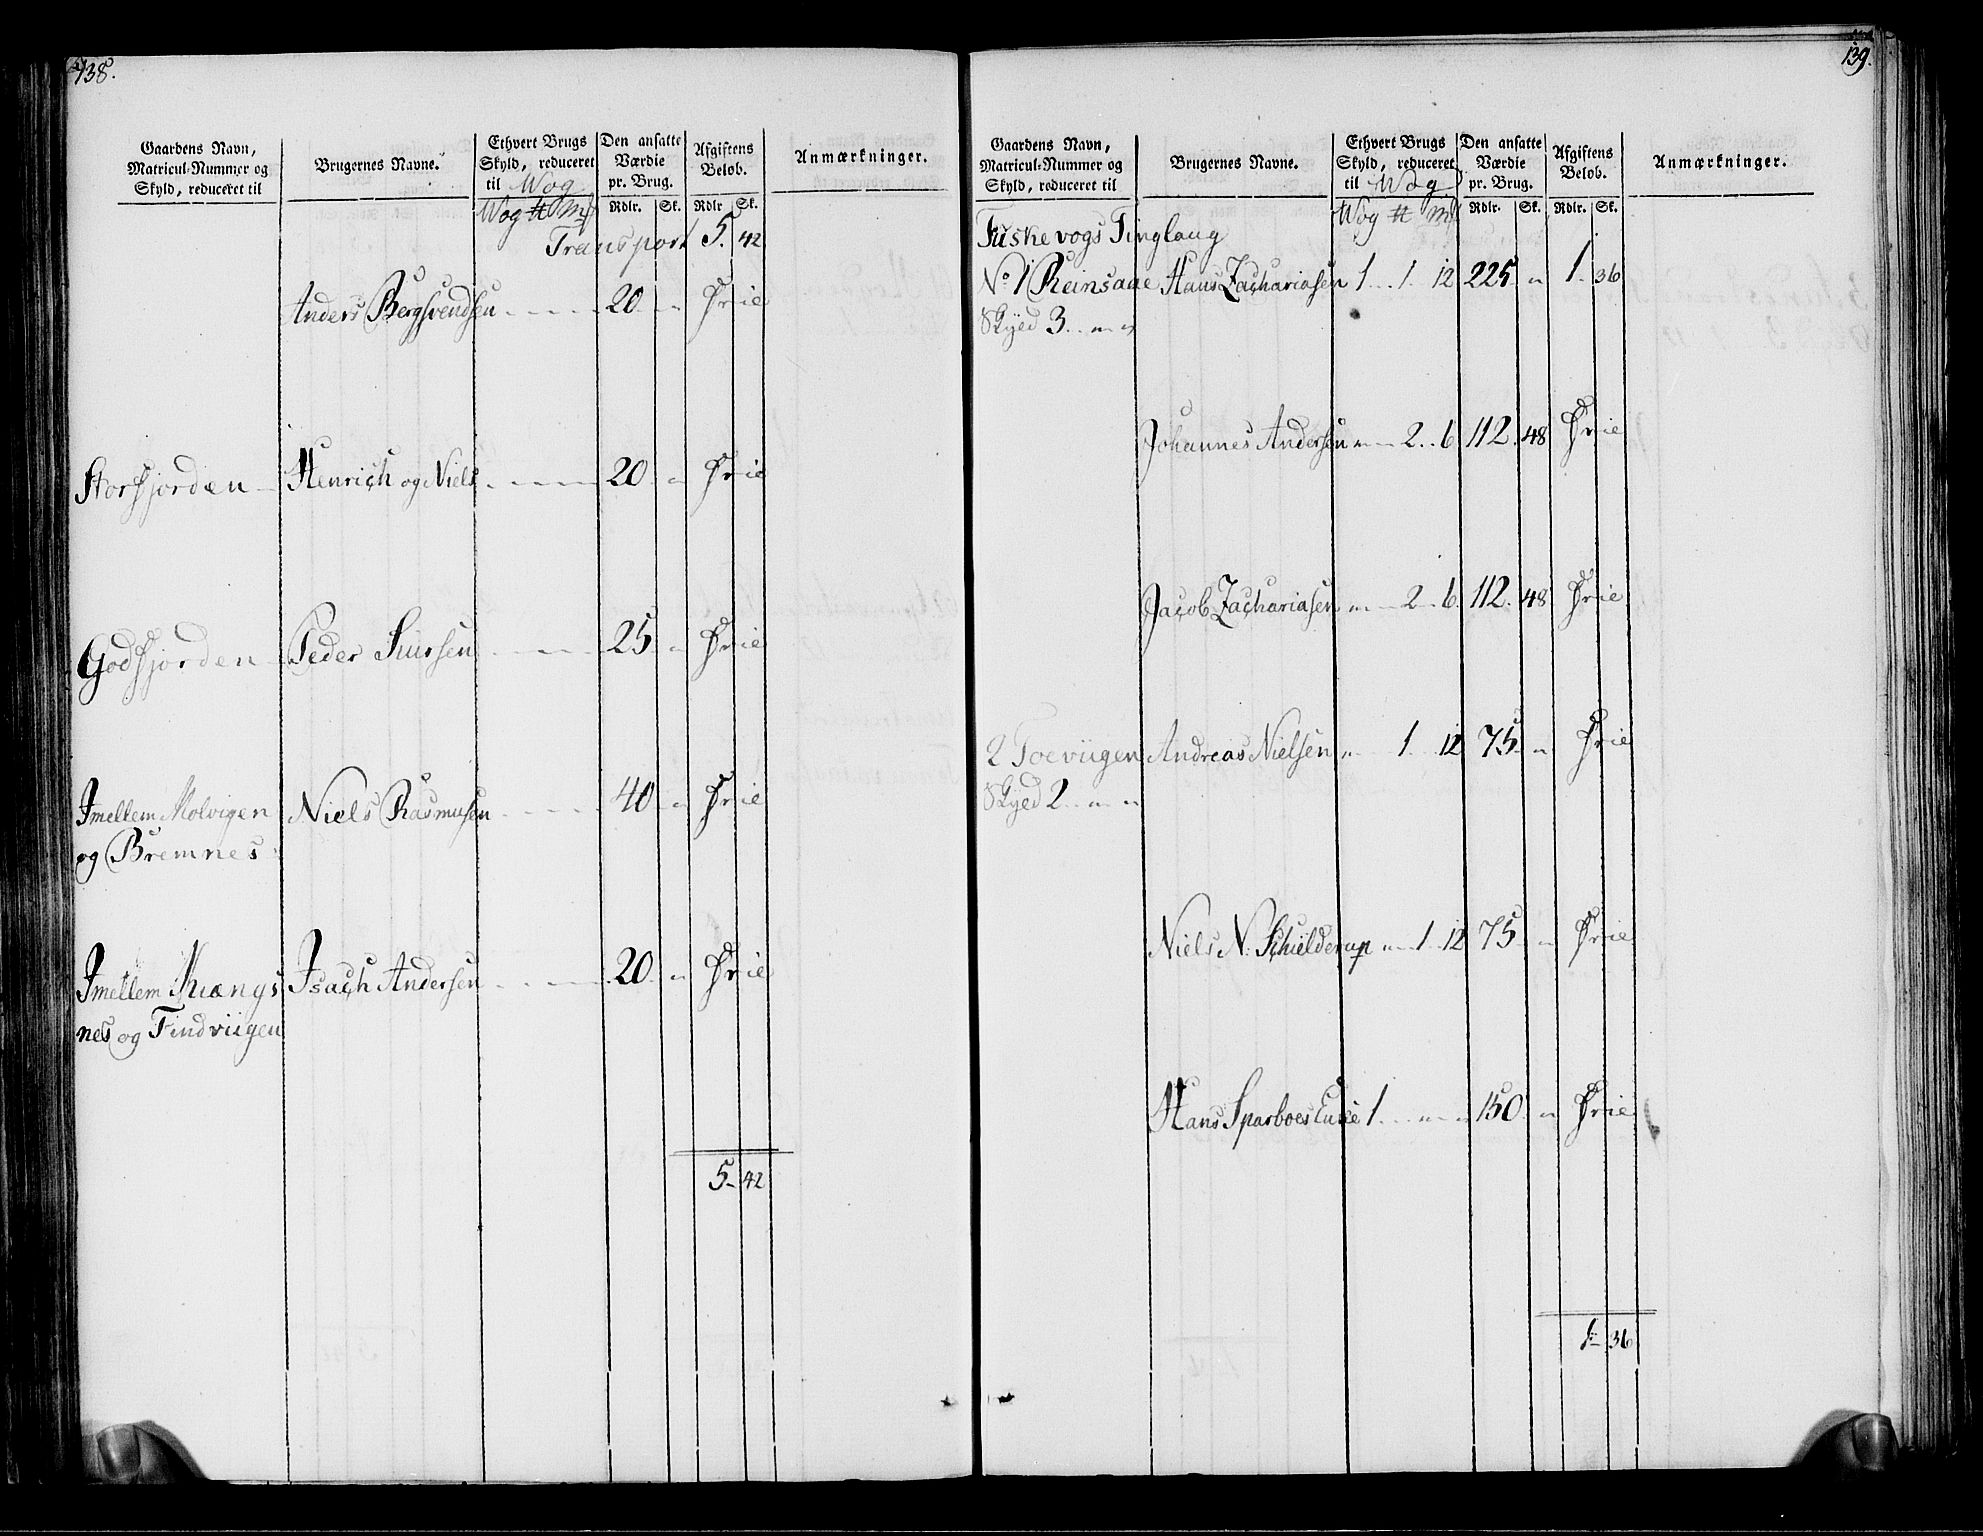 138.
Gaardens Navn, Matricul-Nummer og Skyld, reduceret til
Brugernes Navne.
Ethvert Brugs Skyld, reduceret til Wog
Den ansatte Værdie pr. Brug.
Afgiftens Belob.
Anmærkninger.
Wog ℔ Mk Rdlr. Sk. Rdlr Sk.
Transport 5. 42
Anders Bergsvendsen 20 " Frie
Storfjorden Henrich og Niels 20 " Frie
Godfjorden Peder Siursen 25 " Frie
Imellem Molvigen Niels Rasmusen 40 " Frie
og Bremnes
Imellem Kiængs Isach Andersen 20 " Frie
nes og Findviigen
5 42
139.
Gaardens Navn, Matricul-Nummer og Skyld, reduceret til
Brugernes Navne.
Ethvert Brugs Skyld, reduceret til Wog
Den ansatte Værdie pr. Brug.
Afgiftens Belob.
Anmærkninger.
Wog ℔ Mk Rdlr. Sk. Rdlr. Sk.
Fuskevogs Tinglaug
No 1 Reinsaae Hans Zachariasen 1 1 12 225 " 1. 36
Skyed 3 " "
Johannes Andersen " 2 6 112 48 Frie
Jacob Zachariasen " 2 6 112. 48 Frie
2 Toeviigen Andreas Nielsen " 1 12 75 " Frie
Skyed 2 " "
Niels N. Schielderup " 1 12 75 " Frie
Hans Sparboes Enke 1 " " 150 " Frie
1 36